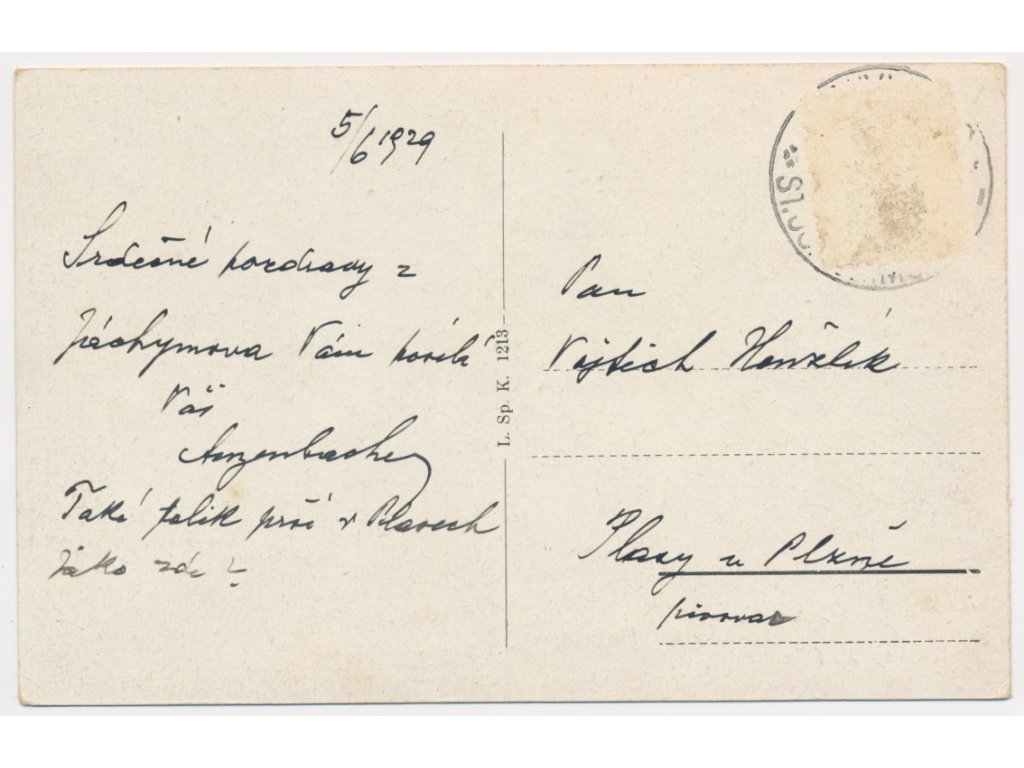 5/6 1929
Srdečné pozdravy z
Jáchymova Vám posílá
Váš
Anzenbacher
Také tolik prší v Plasech
jako zde?
L. Sp. K. 1213
Pan
Vojtěch
Plasy u Plzně
pivovar